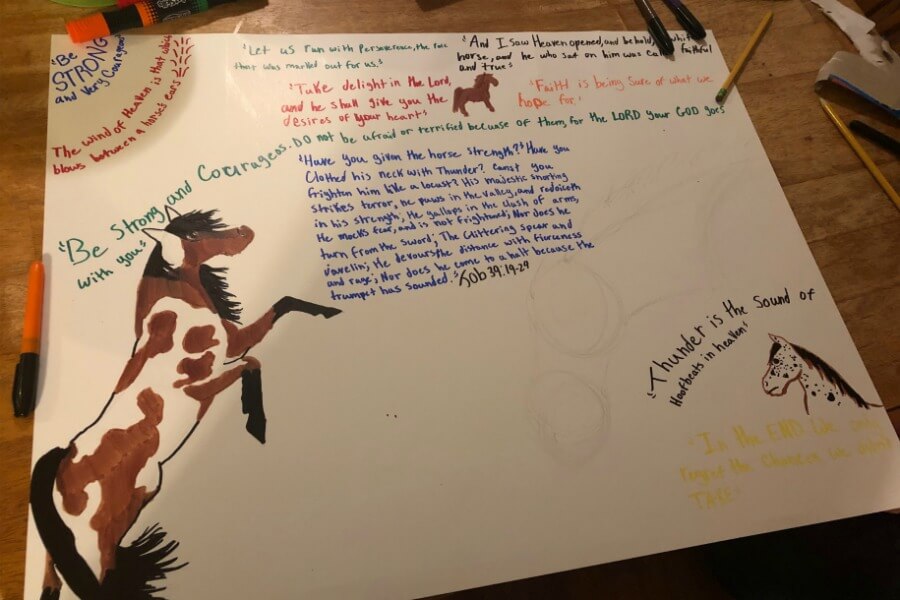 "Be
STRONG
and Very Courageous"
The wind of Heaven is that which
blows between a horse's ears"
"Let us run with Perseverence, the race
that was marked out for us."
"And I saw Heaven opened, and behold, a white
horse, and he who sat on him was called faithful
and true"
"Take delight in the Lord,
and he shall give you the
desires of your heart"
"Faith is being sure of what we
hope for"
"Be Strong and Courageous. DO not be afraid or terrified because of them, for the LORD your GOD goes
with you"
"Have you given the horse strength?" Have you
Clothed his neck with Thunder? Canst you
frighten him like a locust? His majestic snorting
strikes terror, he paws in the valley, and redoiceth
in his strength; He gallops in the clash of arms,
He mocks fear, and is not frightned; Nor does he
turn from the sword; The Glittering spear and
Javelin; He devours the distance with fierceness
and rage; Nor does he come to a halt because the
trumpet has sounded." Job 39:19-29
"Thunder is the sound of
Hoofbeats in heaven"
"In the END we only
regret the chances we didn't
TAKE"